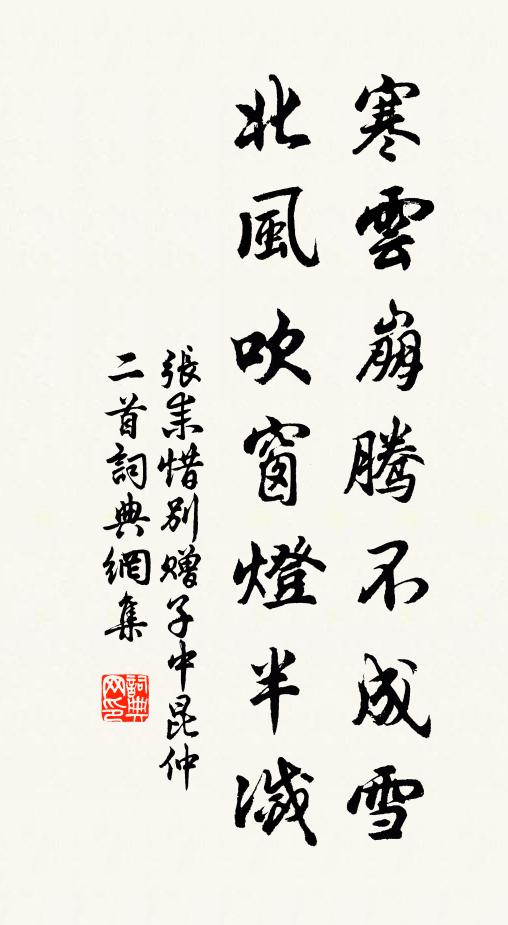 寒雲崩騰不成雪
北風吹窗燈半滅
張耒惜別贈子中昆仲
二首詞典網集
詞典
网印